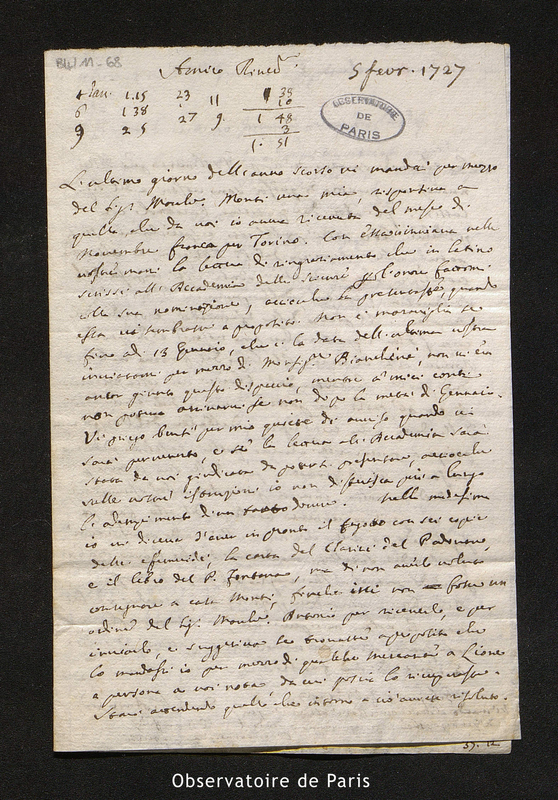 B4/11-68
Amico River.
5 febr. 1727
4 Jan. 1.15 23 11 1 38
6 1 38 27 9. 10
9 2 5 1 48
3
1. 51
OBSERVATOIRE
DE
PARIS
L'ultimo giorno dell'anno scorso vi mandai per mezzo
del Sig. March. Monti una mia, rispontiva a
quella che da voi io aveva ricevuta del mese di
Novembre franca per Torino. Con essa inviava nelle
vostre mani la lettera di ringraziamento che in latino
scrissi all'Accademia delle Scienze per l'onore fattomi
colla sua nominazione, acciocchè la presentaste, quando
essa vi sembrasse a proposito. Non è maraviglia se
fino ai 13 Gennaio, che è la data dell'ultima vostra
inviatami per mezzo di Monsig. Bianchini, non vi era
ancor giunto questo dispaccio, mentre a' miei conti
non poteva arrivarvi se non dopo la metà di Gennaio.
Vi priego bensì per mia quiete di avviso quando vi
sarà pervenuto, e se la lettera all'Accademia sarà
stata da voi giudicata da potersi presentare, acciocchè
sulle vostre istruzioni io non differisca più a lungo
l'adempimento d'un tanto dovere. Nella medesima
io vi diceva d'aver in pronto il fagotto con sei copie
delle efemeridi, la carta del Clarici del Padovano,
e il libro del P. Fontana, ma di non averlo voluto
consegnare a casa Monti, finchè ivi non fosse un
ordine del Sig. March. Antonio per riceverlo, e per
inviarlo, e suggeriva se trovaste a proposito che
lo mandassi io per mezzo di qualche mercante a Lione
a persona a voi nota, da cui poscia lo ricuperaste.
Starò attendendo quello che intorno a ciò avrete risoluto.
Observatoire de Paris